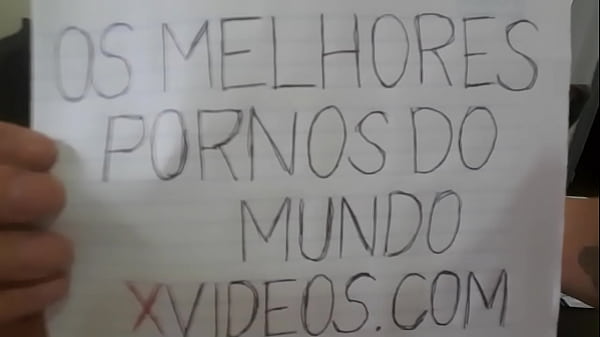 OS MELHORES
PORNOS DO
MUNDO
XVIDEOS.COM